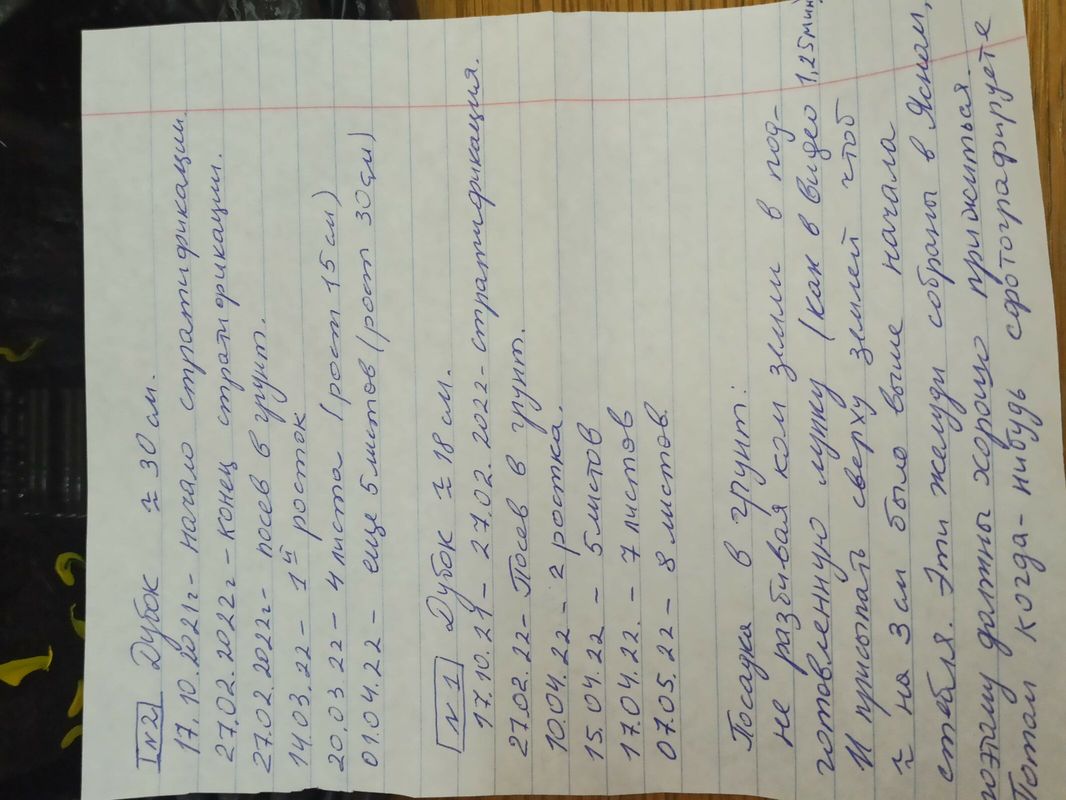 №2 Дубок ≈ 30 см.
17.10.2021г - начало стратификации.
27.02.2022г - конец стратификации.
27.02.2022г - посев в грунт.
14.03.22 - 1й росток
20.03.22 - 4 листа (рост 15 см)
01.04.22 - еще 5 листов (рост 30 см)
№1 Дубок ≈ 18 см.
17.10.21 - 27.02.2022 - стратификация.
27.02.22 - Посев в грунт.
10.04.22 - 2 ростка.
15.04.22 - 5 листов
17.04.22. - 7 листов
07.05.22 - 8 листов.
Посадка в грунт:
не разбивая ком земли в под-
готовленную лунку (как в видео 1,25 мин)
И присыпать сверху землей чтоб
≈ на 3 см было выше начала
стебля. Эти желуди собраны в Ясном,
поэтому должны хорошо прижиться.
Потом когда-нибудь сфотографируете